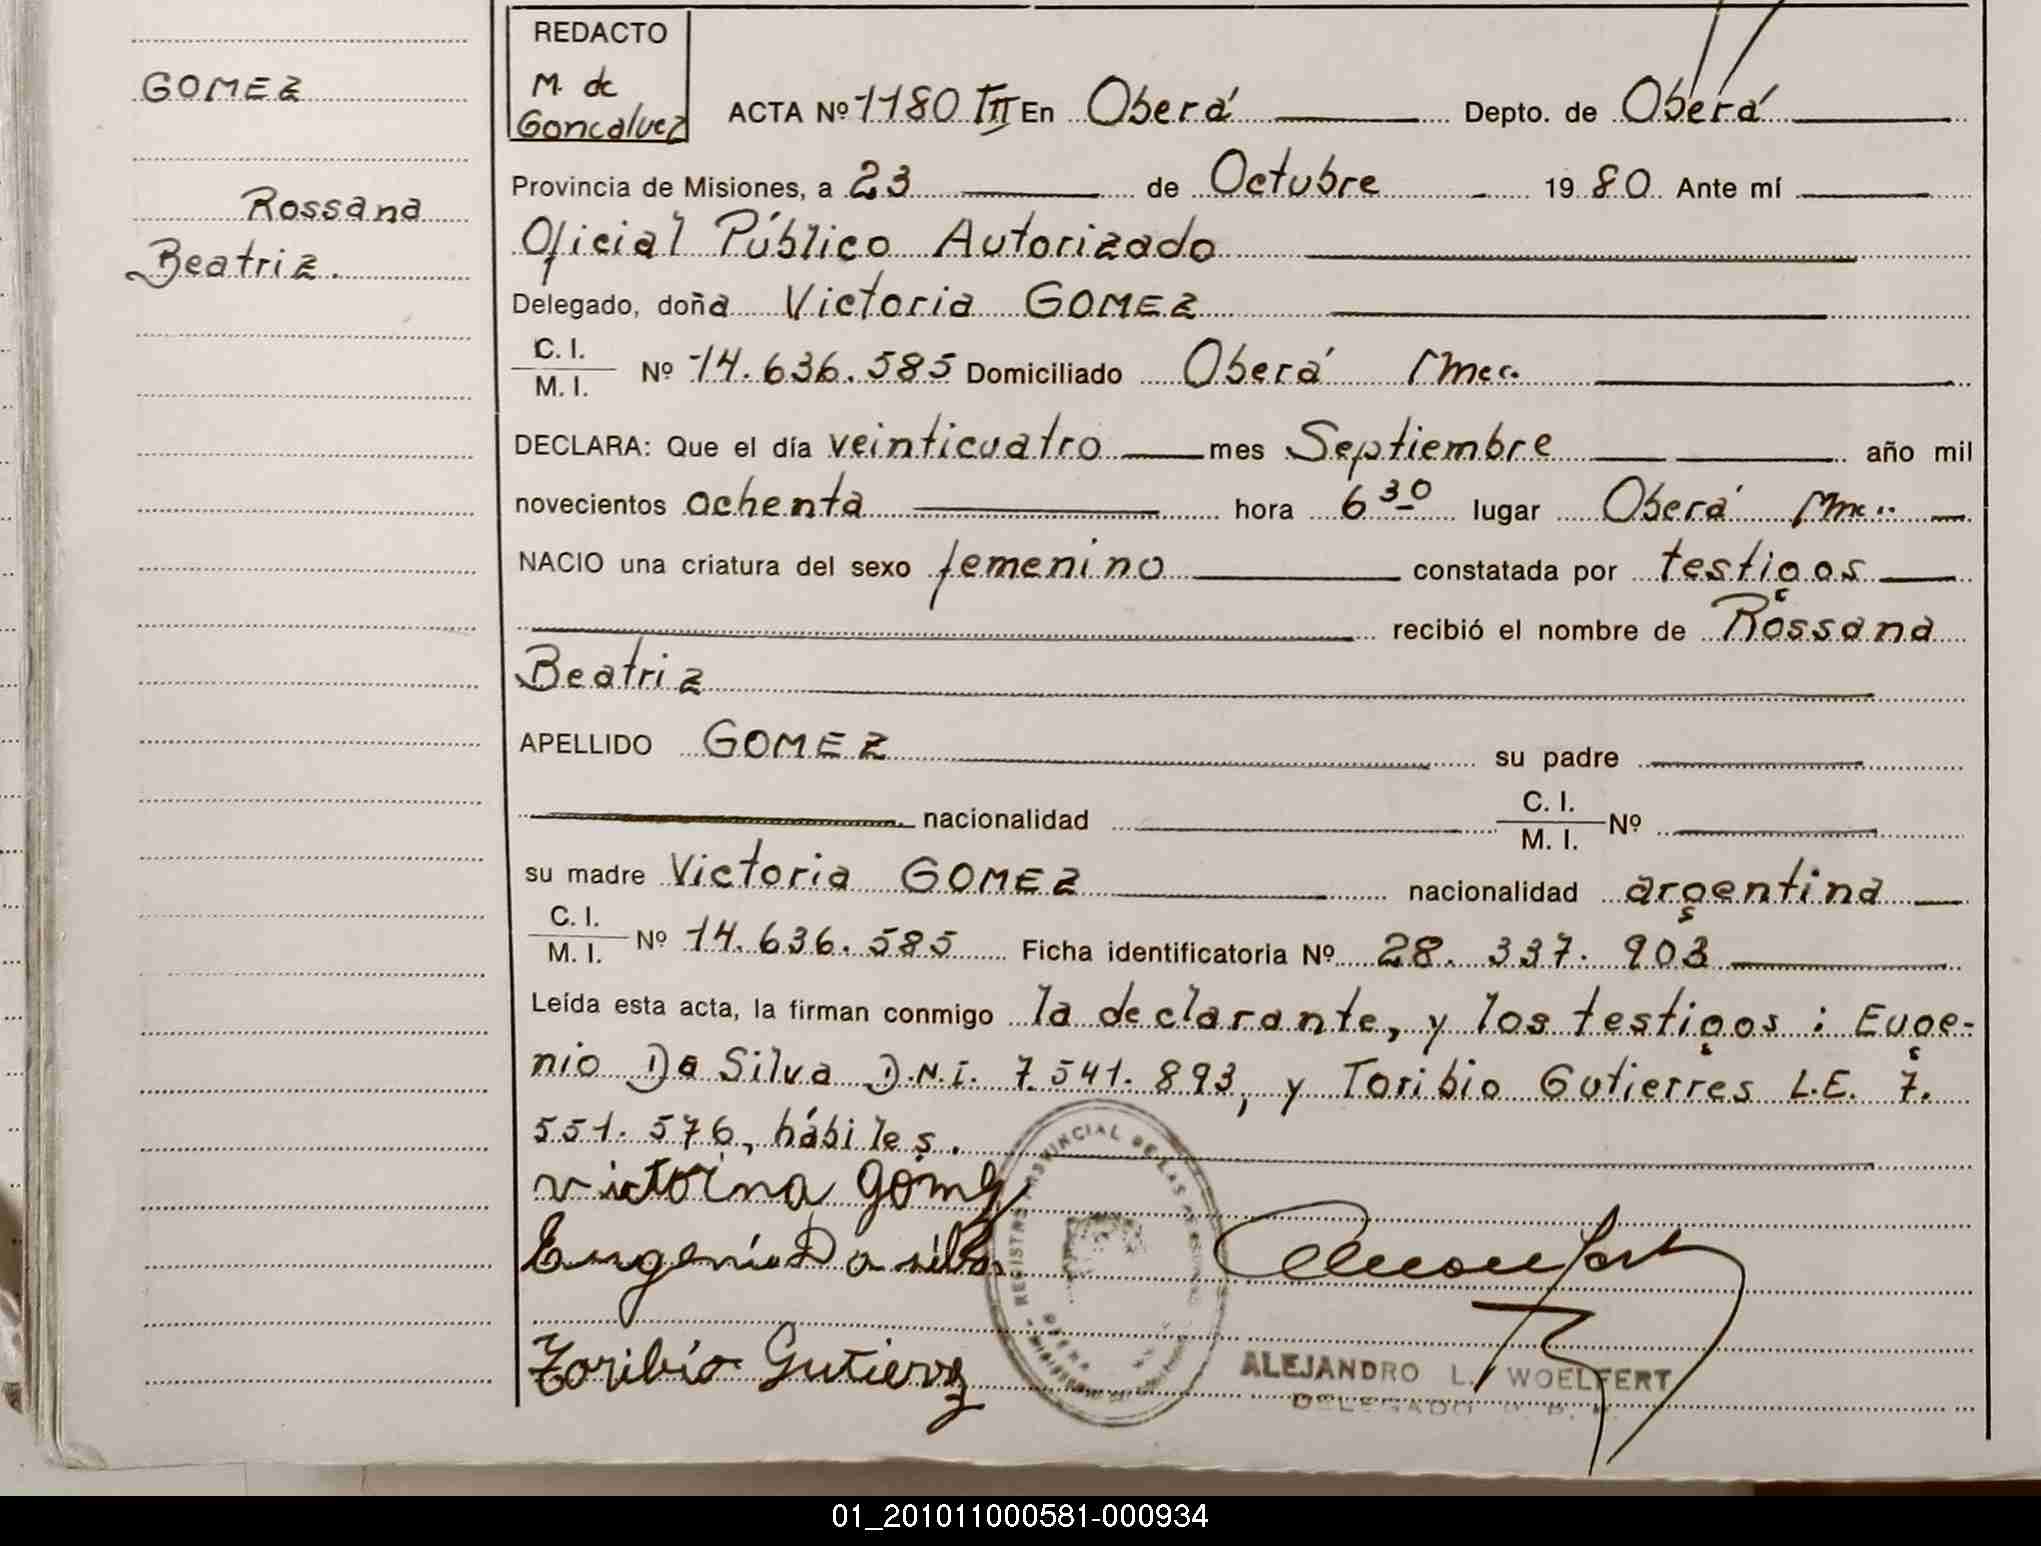 GOMEZ
Rossana
Beatriz.
REDACTO
M. de
Goncalvez
ACTA Nº 1180 TII En Oberá Depto. de Oberá
Provincia de Misiones, a 23 de Octubre 1980 Ante mí
Oficial Público Autorizado
Delegado, doña Victoria GOMEZ
C. I.
M. I. Nº 14.636.585 Domiciliado Oberá Mnes.
DECLARA: Que el día veinticuatro mes Septiembre año mil
novecientos ochenta hora 6 30 lugar Oberá Mnes.
NACIO una criatura del sexo femenino constatada por testigos
recibió el nombre de Rossana
Beatriz
APELLIDO GOMEZ su padre
nacionalidad C. I.
M. I. Nº
su madre Victoria GOMEZ nacionalidad argentina
C. I.
M. I. Nº 14.636.585 Ficha identificatoria Nº 28.337.903
Leída esta acta, la firman conmigo la declarante, y los testigos: Euge-
nio Da Silva D.N.I. 7.541.893, y Toribio Gutierres L.E. 7.
551.576, hábiles.
victorina gomez
Eugenio Da silva
Toribio Gutierrez
REGISTRO PROVINCIAL DE LAS PERSONAS
OBERA
MISIONES
ALEJANDRO L. WOELFERT
DELEGADO R. P. P.
01_201011000581-000934